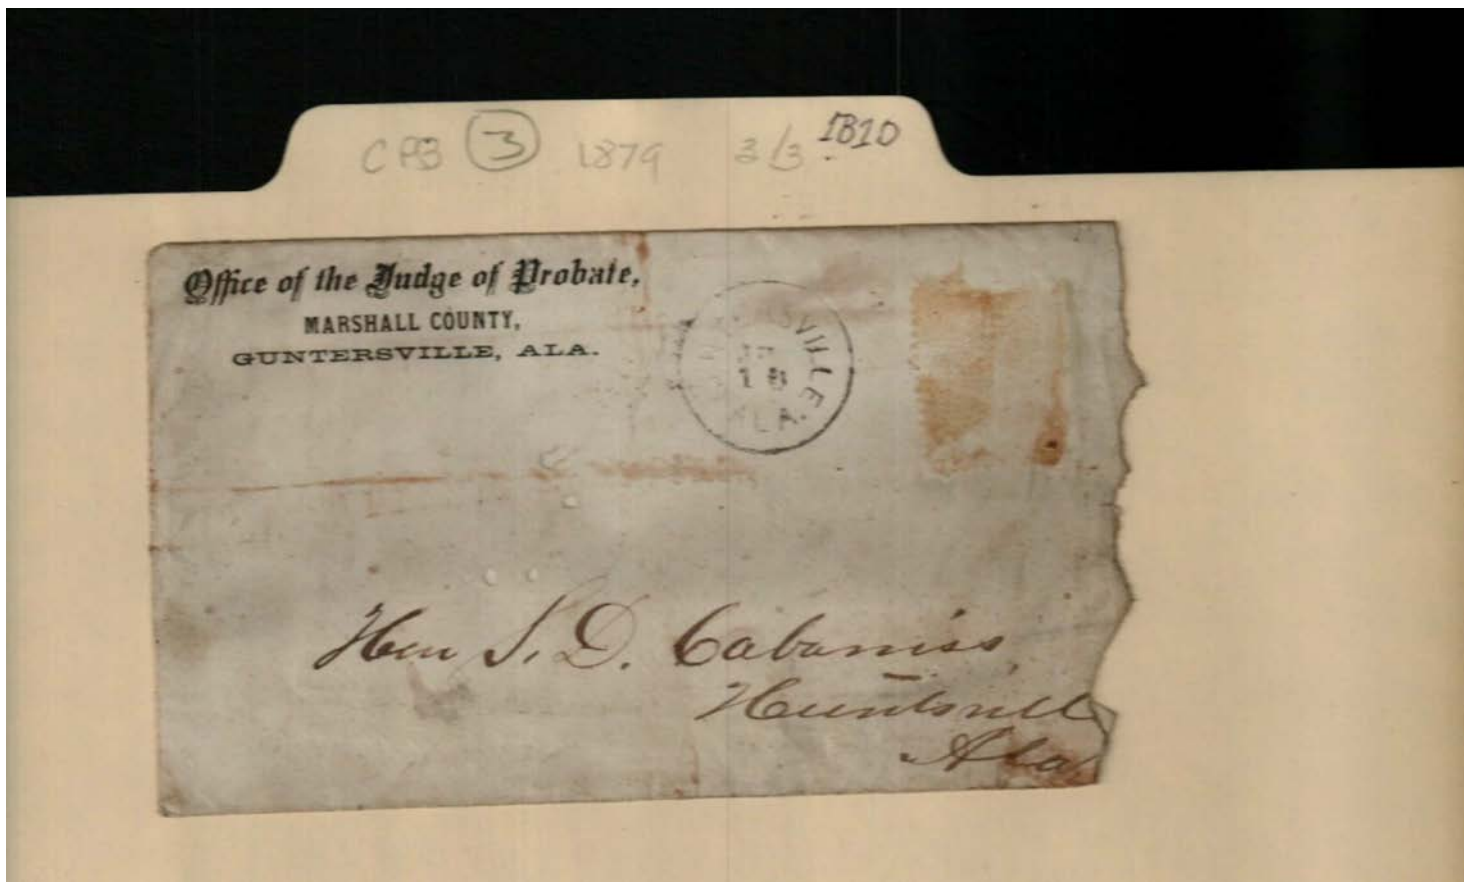 CPB 3 1879 3/3 IB1D
Office of the Judge of Probate,
MARSHALL COUNTY,
GUNTERSVILLE, ALA.
SVILLE
18
ALA.
Hon S. D. Cabaniss,
Huntsvill
Ala